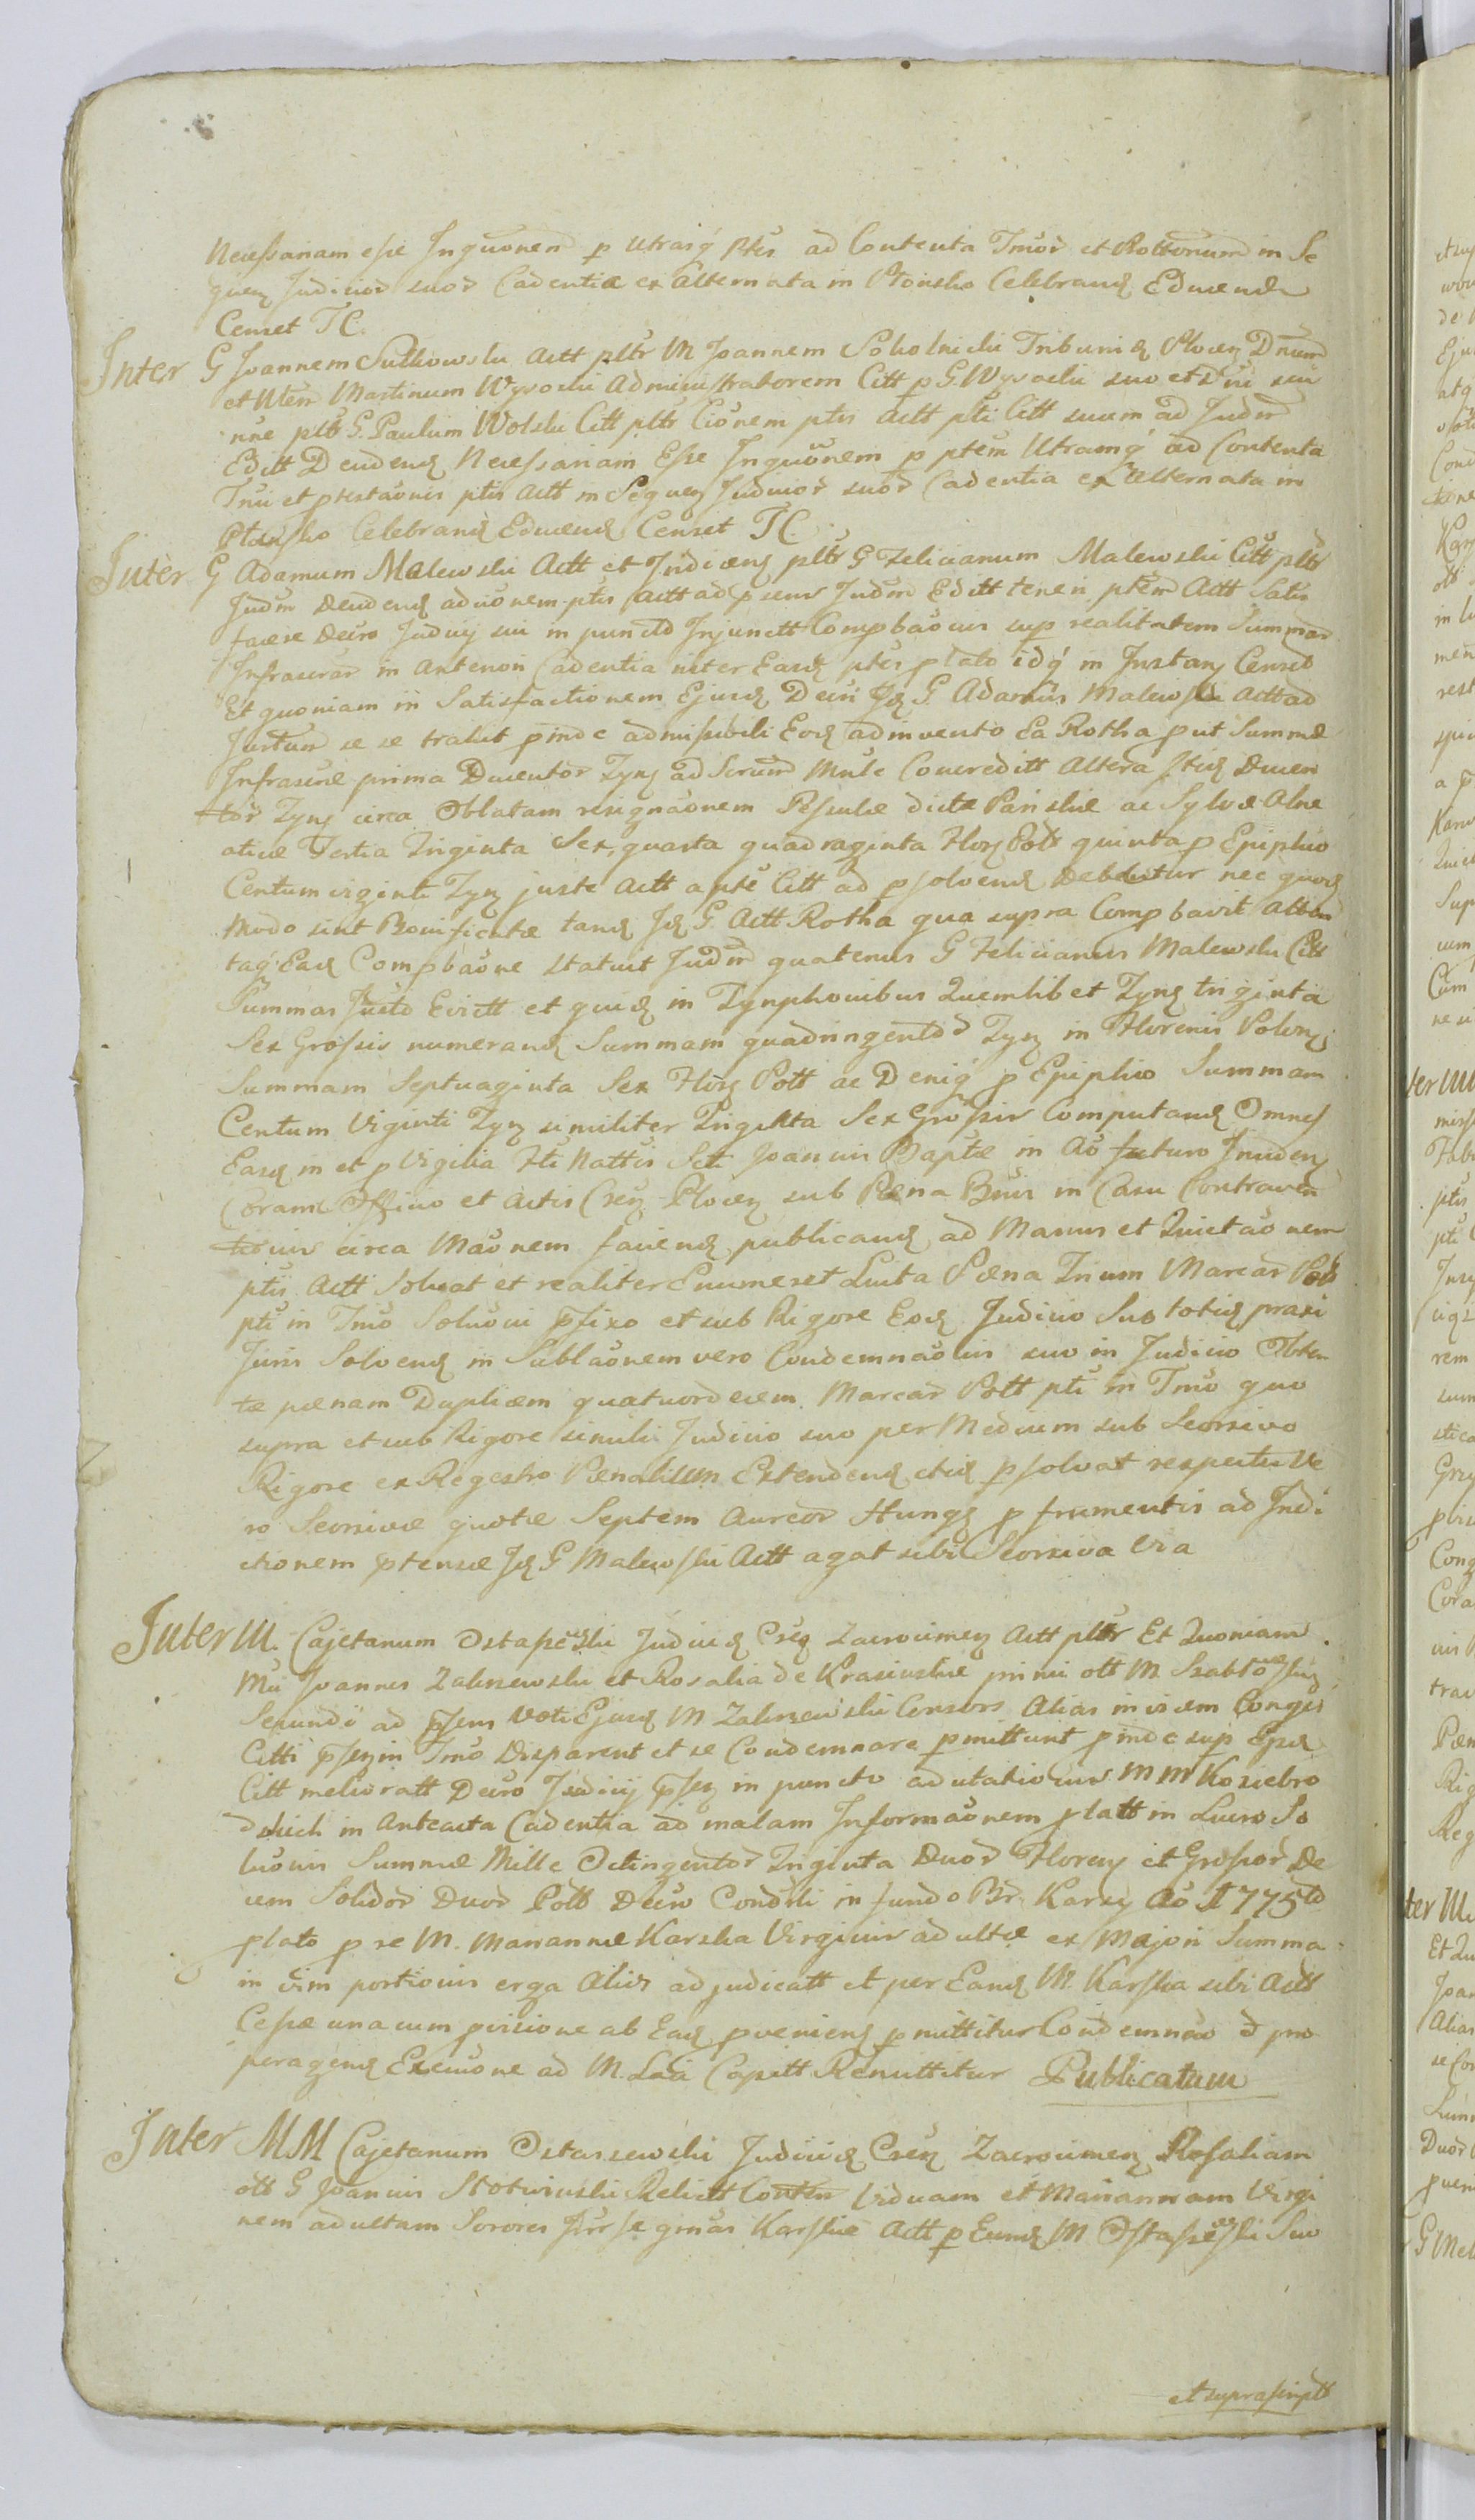 Necessariam esse Inqūonem p utrasq́ ptes ad Contenta Tmor et Rottorum in Se
quen Judicior suor Cadentia ex Alternata in Płonsko Celebrand Educend
Censet TC.
Inter G Joannem Sutkowski Actt pltr M Joannem Sokolnicki Tribunid Plocen Dnum
et Uterr Martinum Wysocki Administratorem Citt p G. Wysocki suo et Dni sui
nne pltr G. Paulum Wolski Citt pltr Cionem ptis Actt pti Citt suum ad Judm
Editt Dendend Necessariam Esse Inqūonem p ptem Utramq́ ad Contenta
Tmi et prestaonis ptis Actt in Sequen Judicior suor Cadentia ex Alternata in
Płonsko Celebrand Educend Censet TC.
Inter G Adamum Malewski Actt et Indicen pltr G Felicianum Malewski Citt pltr
Judm Dendend ad cionem ptis Actt ad p sens Judm Editt teneri ptem Actt Satis
facere Decro Judicij sui in puncto Injunctt Compbaonis sup realitatem Summar
Infrascrar in Anteriori Cadentia inter Easd ptes plato idq́ in Instan Censet
Et quoniam in Satisfactionem Ejusd Decri Id G. Adamus Malewski Actt ad
Jurtum se se tralut pinde admissibili Eod adinvento Ea Rotha put Summæ
Infrascræ prima Ducentor Tyn ad Scrum Mnle Concreditt Altera itid Ducen
tor Tyn circa Oblatam resignaonem Pesculæ dictæ Pariskie ac Sylvæ Alne
aticæ Tertia Triginta Sex, quarta quadraginta Flor Poll quinta p Epiphio
Centum viginti Tyn juste Actt a pte Citt ad psolvend Debentur nec quovis
Modo sint Bonificatæ tand Id G. Actt Rotha qua supra Compbavit Atten
taq́ Ead Compbaone statuit Judm quatenus G Felicianus Malewski Citt
Summas Jurto Evictt et quid in Tynphonibus Quemlibet Tyng triginta
Sex Grossis numerand Summam quadringentor Tyn in Florenis Polon
Summam Septuaginta Sex Flor Pott ac Deniq́ p Epiphio Summam
Centum Viginti Tyn similiter Triginta Sex Grossis Computand Omnes
Easd in et p Vigilia Fti Nattis Scti Joannis Baptæ in Ao futuro Inciden
Coram Officio et Actis Csen Plocen sub Pæna Bnis in Casu Contraven
tionis circa Maonem faciend publicand ad Manus et Quietaonem
ptis Actt Solvat et realiter Enumeret Luita Pæna Trium Marcar Poll
pti in Tmo Solvoni pfixo et sub Rigore Eod Judicio Suo totid praxi
Juris Solvend in Sublaonem vero Condemnaonis suo in Judicio Obten
tæ pænam Duplicem quatuordecem Marcar Pott pti in Tmo quo
supra et sub Rigore simili Judicio suo per Medium sub Seorsivo
Rigore ex Regestro Pænalium Extendend itid psolvat respectu Ve
ro Seorsivæ quotæ Septem Aureor Hung p frumentis ad Indi
ctionem ptensæ Id G Malewski Actt agat sibi Seorsiva Via
Inter M. Cajetanum Ostaszewski Judicid Csen Zacrocimen Actt pltr Et Quoniam
Mii Joannes Zaluzewski et Rosalia de Krasinskie primi ott M Szabłowski
Secundi ad psens Voti Ejusd M Zaluzewski Consors Alias invicem Conges
Citti psen in Tmo Disparent et se Condemnare pmittunt pinde sup Epd
Citt melioratt Decro Judicij psen in puncto ad citationis MM Koziebro
dzkich in Anteacta Cadentia ad malam Informaonem platt in Lucro So
luonis Summæ Mille Octingentor Triginta Duor Floren et Grossor De
cem Solidor Duor Poll Decro Condsli in fundo Br. Karsy Ao 1775to
plato p se M. Mariannæ Karska Virginis adultæ ex Majori Summa
in Vim portionis erga Alios adjudicatt et per Eand M. Karska sibi Actt
Cessæ una cum pvisione ab Ead pvenien pmittitur Condemnao d pro
peragend Execuone ad M. Loci Capitt Remittitur Publicatum
Inter MM Cajetanum Ostaszewski Judicid Csen Zacrocimen Rosaliam
ott G Joannis Słotwinski Relictt Viduam et Mariannam Virgi
nem adultam Sorores Inr se gmas Karskie Actt p Eund M Ostaszewski Suo
et suprascriptt